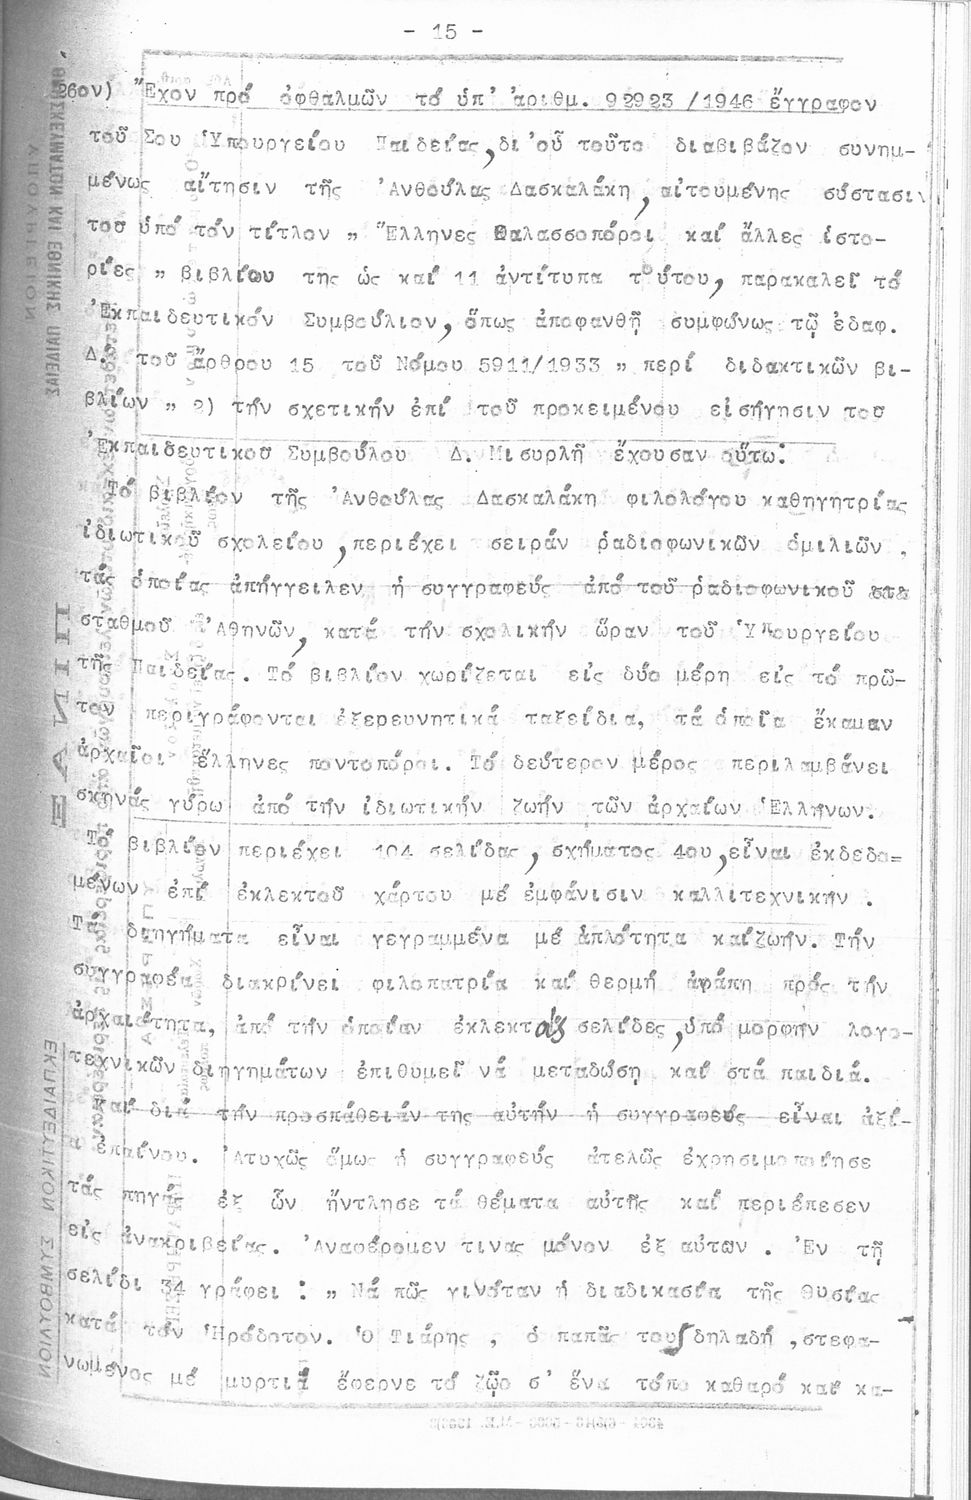 - 15 -
26ον) Ἔχον πρό ὀφθαλμῶν τό ὑπ' ἀριθμ. 92923 /1946 ἔγγραφον
τοῦ Σου Ὑπουργείου Παιδείας, δι'οὗ τοῦτο διαβιβάζον συνημ-
μένως αἴτησιν τῆς 'Ανθούλας Δασκαλάκη, αἰτουμένης σύστασιν
τοῦ ὑπό τόν τίτλον „ Ἕλληνες Θαλασσοπόροι καί ἄλλες ἱστο-
ρίες „ βιβλίου της ὡς καί 11 ἀντίτυπα τούτου, παρακαλεῖ τό
'Εκπαιδευτικόν Συμβούλιον, ὅπως ἀποφανθῇ συμφώνως τῷ ἐδαφ.
Δ. τοῦ ἄρθρου 15 τοῦ Νόμου 5911/1933 „ περί διδακτικῶν βι-
βλίων „ 2) τήν σχετικήν ἐπί τοῦ προκειμένου εἰσήγησιν τοῦ
'Εκπαιδευτικοῦ Συμβούλου Δ. Μισυρλῆ ἔχουσαν οὕτω:
Τό βιβλίον τῆς 'Ανθούλας Δασκαλάκη φιλολόγου καθηγητρίας
ἰδιωτικοῦ σχολείου, περιέχει σειράν ραδιοφωνικῶν ὁμιλιῶν,
τάς ὁποίας ἀπήγγειλεν ἡ συγγραφεύς ἀπό τοῦ ραδιοφωνικοῦ
σταθμοῦ 'Αθηνῶν, κατά τήν σχολικήν ὥραν τοῦ Ὑπουργείου
τῆς Παιδείας. Τό βιβλίον χωρίζεται εἰς δύο μέρη εἰς τό πρῶ-
τον περιγράφονται ἐξερευνητικά ταξείδια, τά ὁποῖα ἔκαμαν
ἀρχαῖοι ἕλληνες ποντοπόροι. Τό δεύτερον μέρος περιλαμβάνει
σκηνάς γύρω ἀπό τήν ἰδιωτικήν ζωήν τῶν ἀρχαίων Ἑλλήνων.
Τό βιβλίον περιέχει 104 σελίδας, σχήματος 4ου, εἶναι ἐκδεδο=
μένων ἐπί ἐκλεκτοῦ χάρτου μέ ἐμφάνισιν καλλιτεχνικήν.
Τά διηγήματα εἶναι γεγραμμένα μέ ἁπλότητα καίζωήν. Τήν
συγγραφέα διακρίνει φιλοπατρία καί θερμή ἀγάπη πρός τήν
ἀρχαιότητα, ἀπό τήν ὁποίαν ἐκλεκτάς σελίδες, ὑπό μορφήν λογο-
τεχνικῶν διηγημάτων ἐπιθυμεῖ νά μεταδώσῃ καί στά παιδιά.
Καί διά τήν προσπάθειάν της αὐτήν ἡ συγγραφεύς εἶναι ἀξί-
α ἐπαίνου. 'Ατυχῶς ὅμως ἡ συγγραφεύς ἀτελῶς ἐχρησιμοποίησε
τάς πηγάς ἐξ ὧν ἤντλησε τά θέματα αὐτῆς καί περιέπεσεν
εἰς ἀνακριβείας. 'Αναφέρομεν τινας μόνον ἐξ αὐτῶν. 'Εν τῇ
σελίδι 34 γράφει : „ Νά πῶς γινόταν ἡ διαδικασία τῆς θυσίας
κατά τόν Ἡρόδοτον. Ὁ Τιάρης, ὁ παπᾶς τους δηλαδή, στεφα-
νωμένος μέ μυρτιά ἔφερνε τό ζῷο σ' ἕνα τόπο καθαρό καί κα-